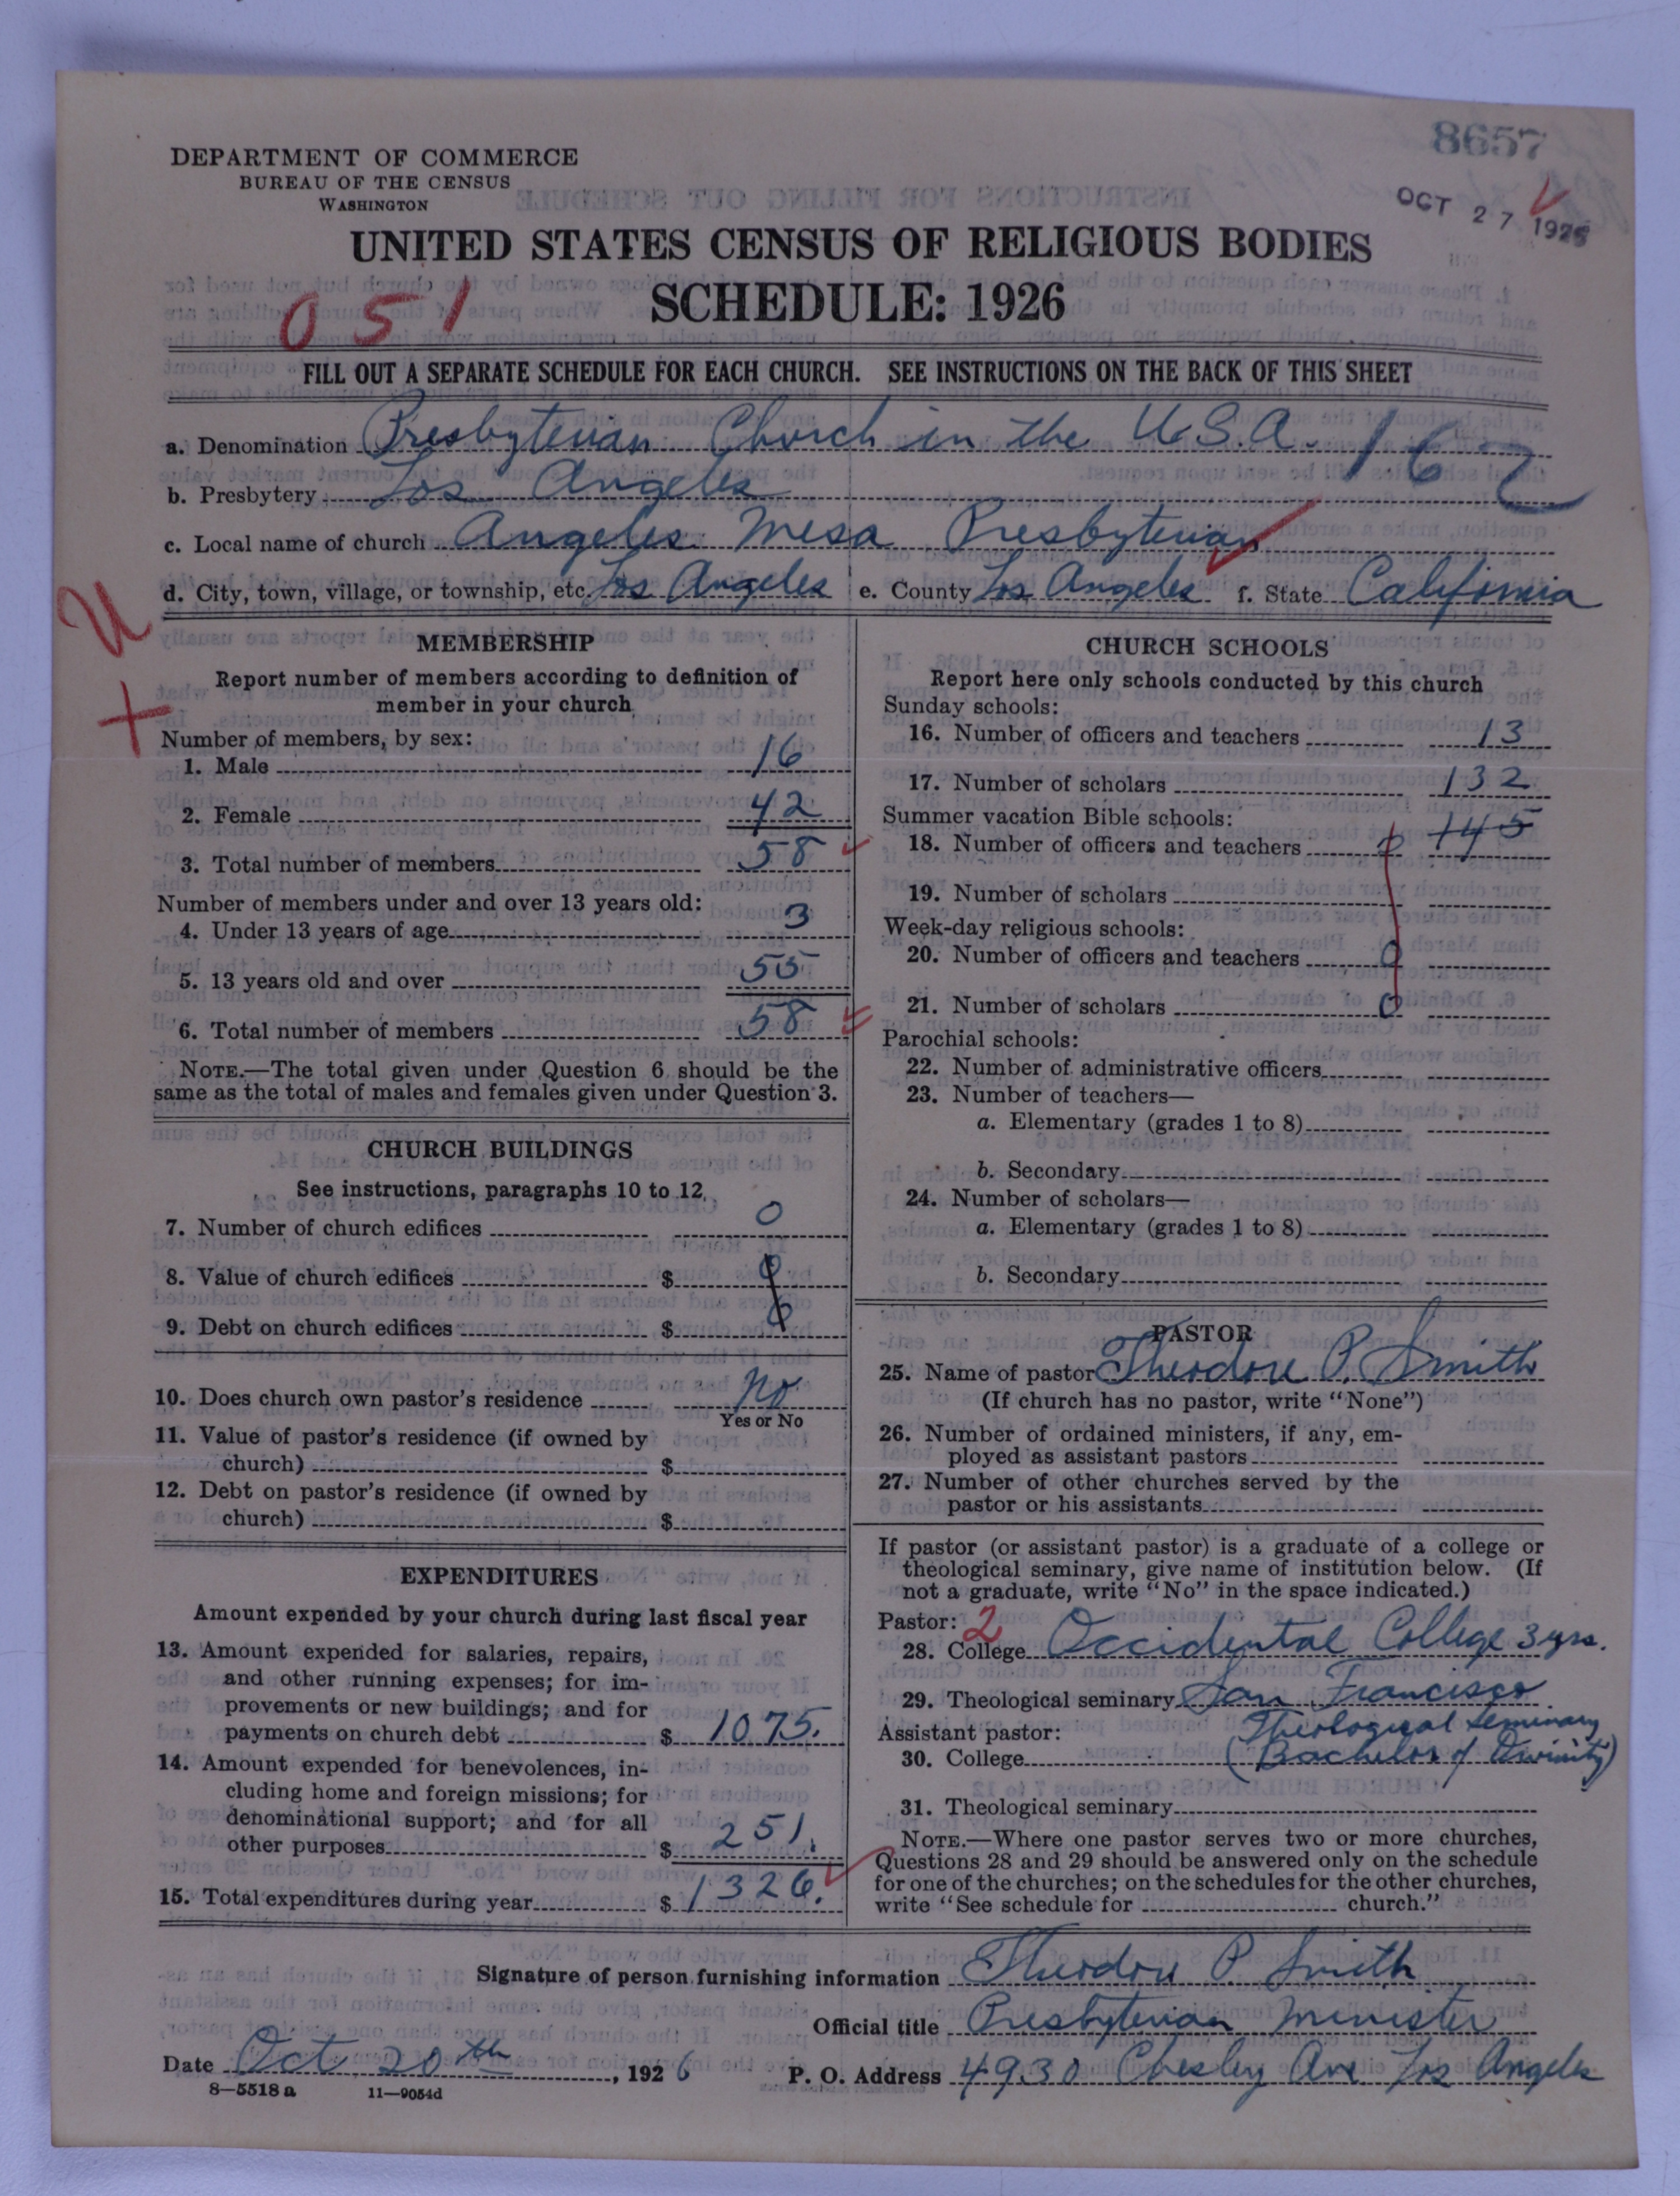 8657
DEPARTMENT OF COMMERCE
BUREAU OF THE CENSUS
WASHINGTON
OCT 27 1926
UNITED STATES CENSUS OF RELIGIOUS BODIES
SCHEDULE: 1926
051
FILL OUT A SEPARATE SCHEDULE FOR EACH CHURCH. SEE INSTRUCTIONS ON THE BACK OF THIS SHEET
a. Denomination Presbyterian Church in the U.S.A. 162
b. Presbytery Los Angeles
c. Local name of church Angeles Mesa Presbyterian
d. City, town, village, or township, etc. Los Angeles e. County Los Angeles f. State California
U
+
MEMBERSHIP
Report number of members according to definition of
member in your church
Number of members, by sex:
1. Male 16
2. Female 42
3. Total number of members 58
Number of members under and over 13 years old:
4. Under 13 years of age 3
5. 13 years old and over 55
6. Total number of members 58
NOTE.—The total given under Question 6 should be the
same as the total of males and females given under Question 3.
CHURCH BUILDINGS
See instructions, paragraphs 10 to 12
7. Number of church edifices 0
8. Value of church edifices $ 0
9. Debt on church edifices $ 0
10. Does church own pastor's residence No
Yes or No
11. Value of pastor's residence (if owned by
church) $
12. Debt on pastor's residence (if owned by
church) $
EXPENDITURES
Amount expended by your church during last fiscal year
13. Amount expended for salaries, repairs,
and other running expenses; for im-
provements or new buildings; and for
payments on church debt $ 1075.
14. Amount expended for benevolences, in-
cluding home and foreign missions; for
denominational support; and for all
other purposes $ 251.
15. Total expenditures during year $ 1326.
CHURCH SCHOOLS
Report here only schools conducted by this church
Sunday schools:
16. Number of officers and teachers 13
17. Number of scholars 132
Summer vacation Bible schools:
18. Number of officers and teachers 0 145
19. Number of scholars
Week-day religious schools:
20. Number of officers and teachers 0
21. Number of scholars 0
Parochial schools:
22. Number of administrative officers
23. Number of teachers—
a. Elementary (grades 1 to 8)
b. Secondary
24. Number of scholars—
a. Elementary (grades 1 to 8)
b. Secondary
PASTOR
25. Name of pastor Theodore P. Smith
(If church has no pastor, write "None")
26. Number of ordained ministers, if any, em-
ployed as assistant pastors
27. Number of other churches served by the
pastor or his assistants
If pastor (or assistant pastor) is a graduate of a college or
theological seminary, give name of institution below. (If
not a graduate, write "No" in the space indicated.)
Pastor: 2
28. College Occidental College 3 yrs.
29. Theological seminary San Francisco
Assistant pastor: Theological Seminary
30. College (Bachelor of Divinity)
31. Theological seminary
NOTE.—Where one pastor serves two or more churches,
Questions 28 and 29 should be answered only on the schedule
for one of the churches; on the schedules for the other churches,
write "See schedule for church."
Signature of person furnishing information Theodore P. Smith
Official title Presbyterian Minister
Date Oct 20th, 1926 P. O. Address 4930 Chesley Ave Los Angeles
8—5518 a 11—9054d